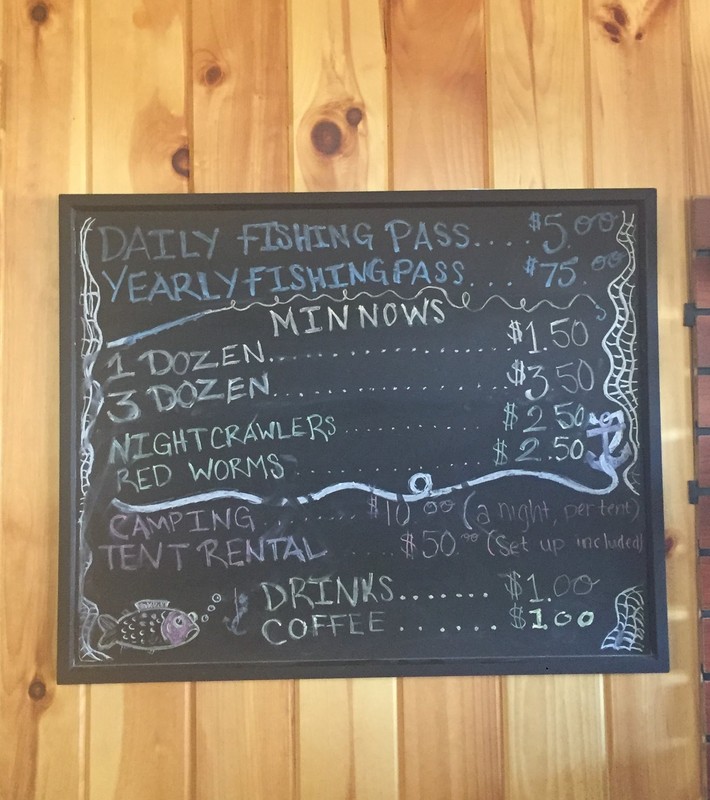 DAILY FISHING PASS.... $5.00
YEARLY FISHING PASS.... $75.00
MINNOWS
1 DOZEN................ $1.50
3 DOZEN................ $3.50
NIGHTCRAWLERS........ $2.50
RED WORMS............ $2.50
CAMPING.......... $10.00 (a night, per tent)
TENT RENTAL..... $50.00 (Set up included)
DRINKS....... $1.00
COFFEE....... $1.00